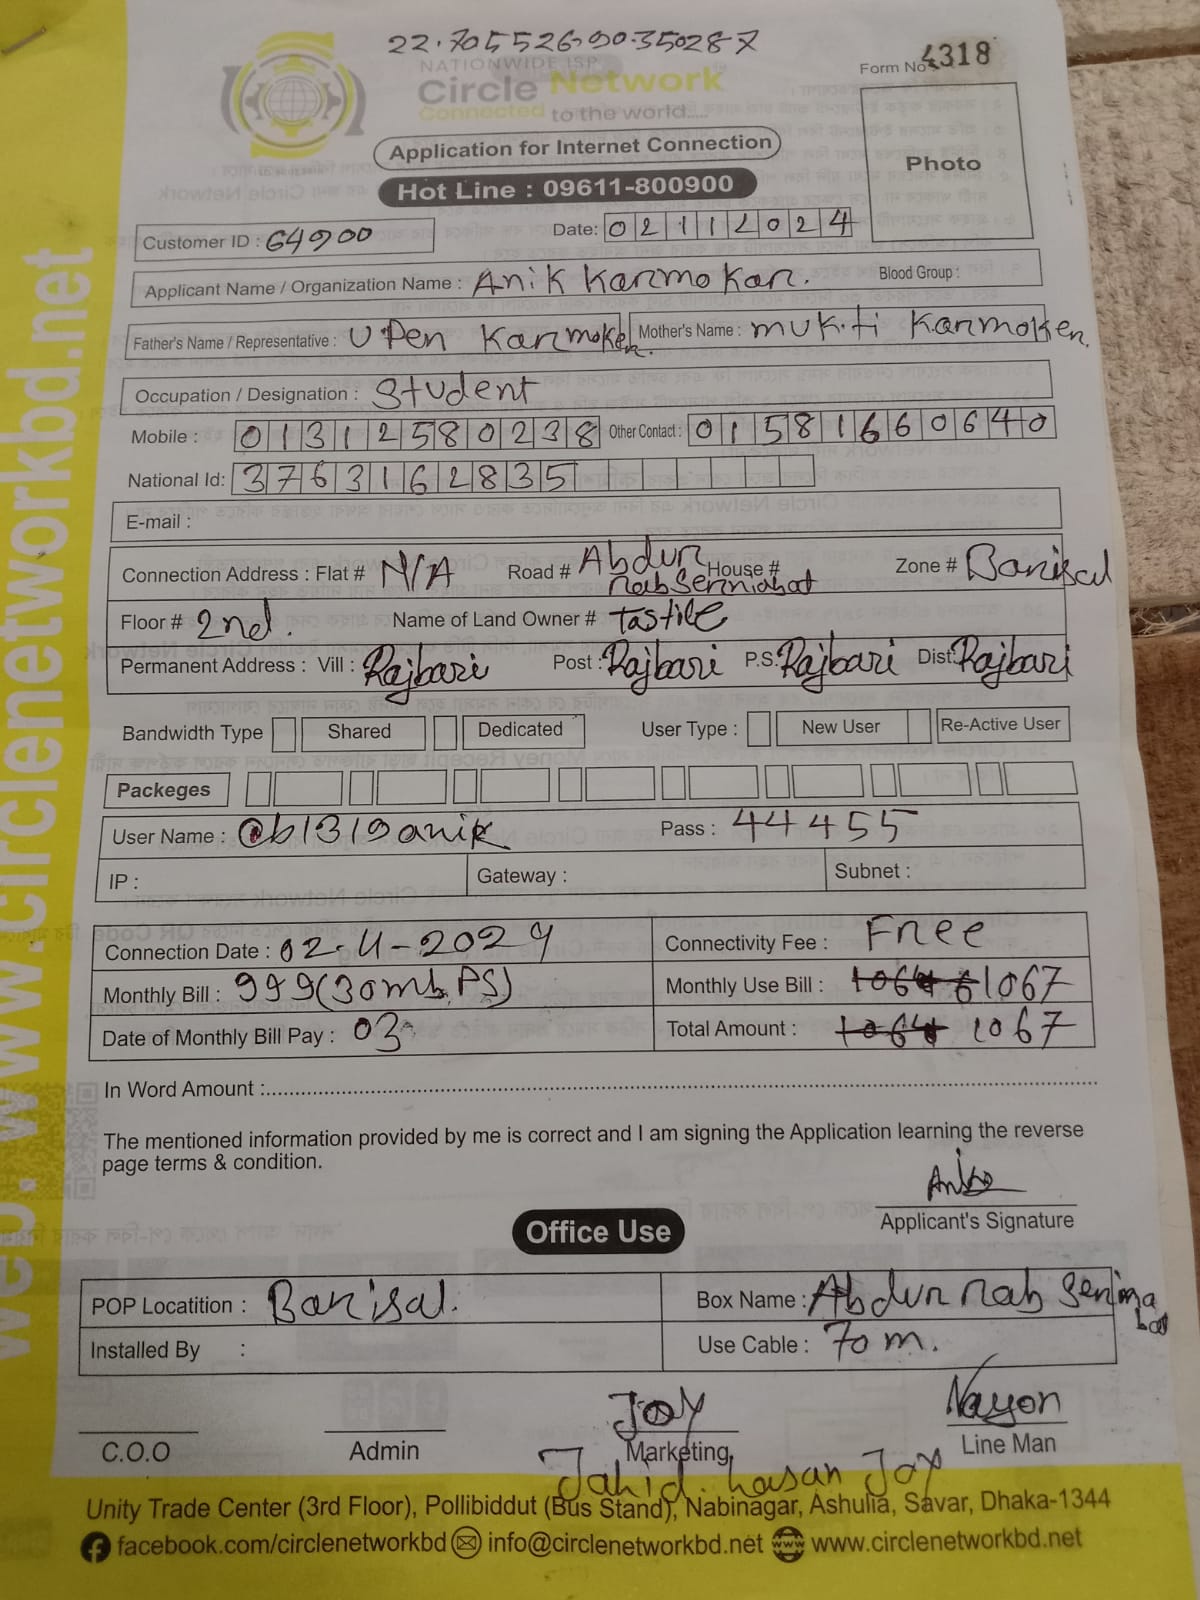 22.705526,90.350287
NATIONWIDE ISP
Circle Network
Connected to the world.....
Form No 4318
Application for Internet Connection
Photo
Hot Line : 09611-800900
Customer ID : 64900
Date: 02112024
Applicant Name / Organization Name : Anik Karmokar. Blood Group :
Father's Name / Representative : Upen Karmoker. Mother's Name : mukti Karmoker.
Occupation / Designation : Student
Mobile : 01312580238 Other Contact : 01581660640
National Id: 3763162835
E-mail :
Connection Address : Flat # N/A Road # Abdur rab Serniabat House # Zone # Barisal
Floor # 2nd. Name of Land Owner # Tastile
Permanent Address : Vill : Rajbari Post : Rajbari P.S: Rajbari Dist: Rajbari
Bandwidth Type Shared Dedicated User Type : New User Re-Active User
Packeges
User Name : @b1319anik Pass : 44455
IP : Gateway : Subnet :
Connection Date : 02-11-2024 Connectivity Fee : Free
Monthly Bill : 999(30mbPS) Monthly Use Bill : 1067
Date of Monthly Bill Pay : 03 Total Amount : 1067
In Word Amount :
The mentioned information provided by me is correct and I am signing the Application learning the reverse
page terms & condition.
Anik
Applicant's Signature
Office Use
POP Locatition : Barisal. Box Name : Abdur rab Serniabat
Installed By : Use Cable : 70 m.
Joy Nayon
C.O.O Admin Marketing Line Man
Jahid hasan Joy
Unity Trade Center (3rd Floor), Pollibiddut (Bus Stand), Nabinagar, Ashulia, Savar, Dhaka-1344
facebook.com/circlenetworkbd info@circlenetworkbd.net www.circlenetworkbd.net
web: www.circlenetworkbd.net